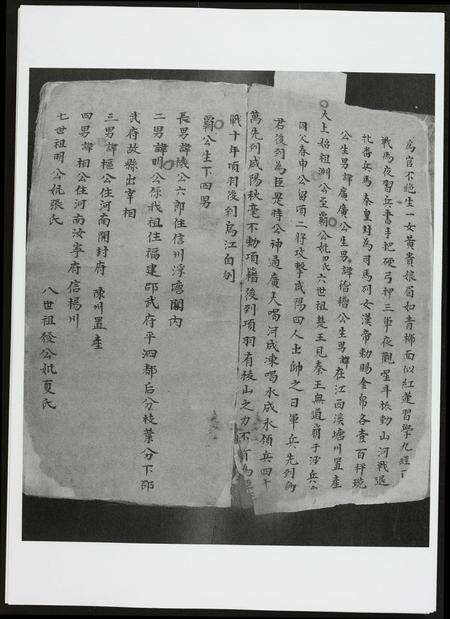 為官不絕生一女黃貴娘眉如青柳面似紅蓮習學九經丁
戰馬夜習兵書手把硬弓押三軍夜觀星斗振動山河戰退
牝番兵馬秦皇封為司馬列女漢帝勅賜金帛各壹百秤琬
公生男諱廣廣公生男諱僧僧公生男諱在江西溪塘州置產
○大上始祖渊公至霸公妣四氏六世祖楚王見秦王無道霸于沙兵
同父春申公留項二將攻擊咸陽四人出帥之日軍兵先列為
君後列為臣是時公神通廣大喝河成凍喝水成氷領兵四十
萬先列咸陽秋毫不動項籍後列項羽有拔山之力不行為
戰十年項羽後列烏江自刎
霸公生下四男
長男諱淺公六郎住信州浮塘閣內
二男諱明公係我祖住福建邵武府平泗都后分枝葉分下邵
武府故縣出宰相
三男諱樞公住河南開封府陳州置產
四男諱相公住河南汝寧府信楊州
七世祖明公妣張氏 八世祖發公妣夏氏